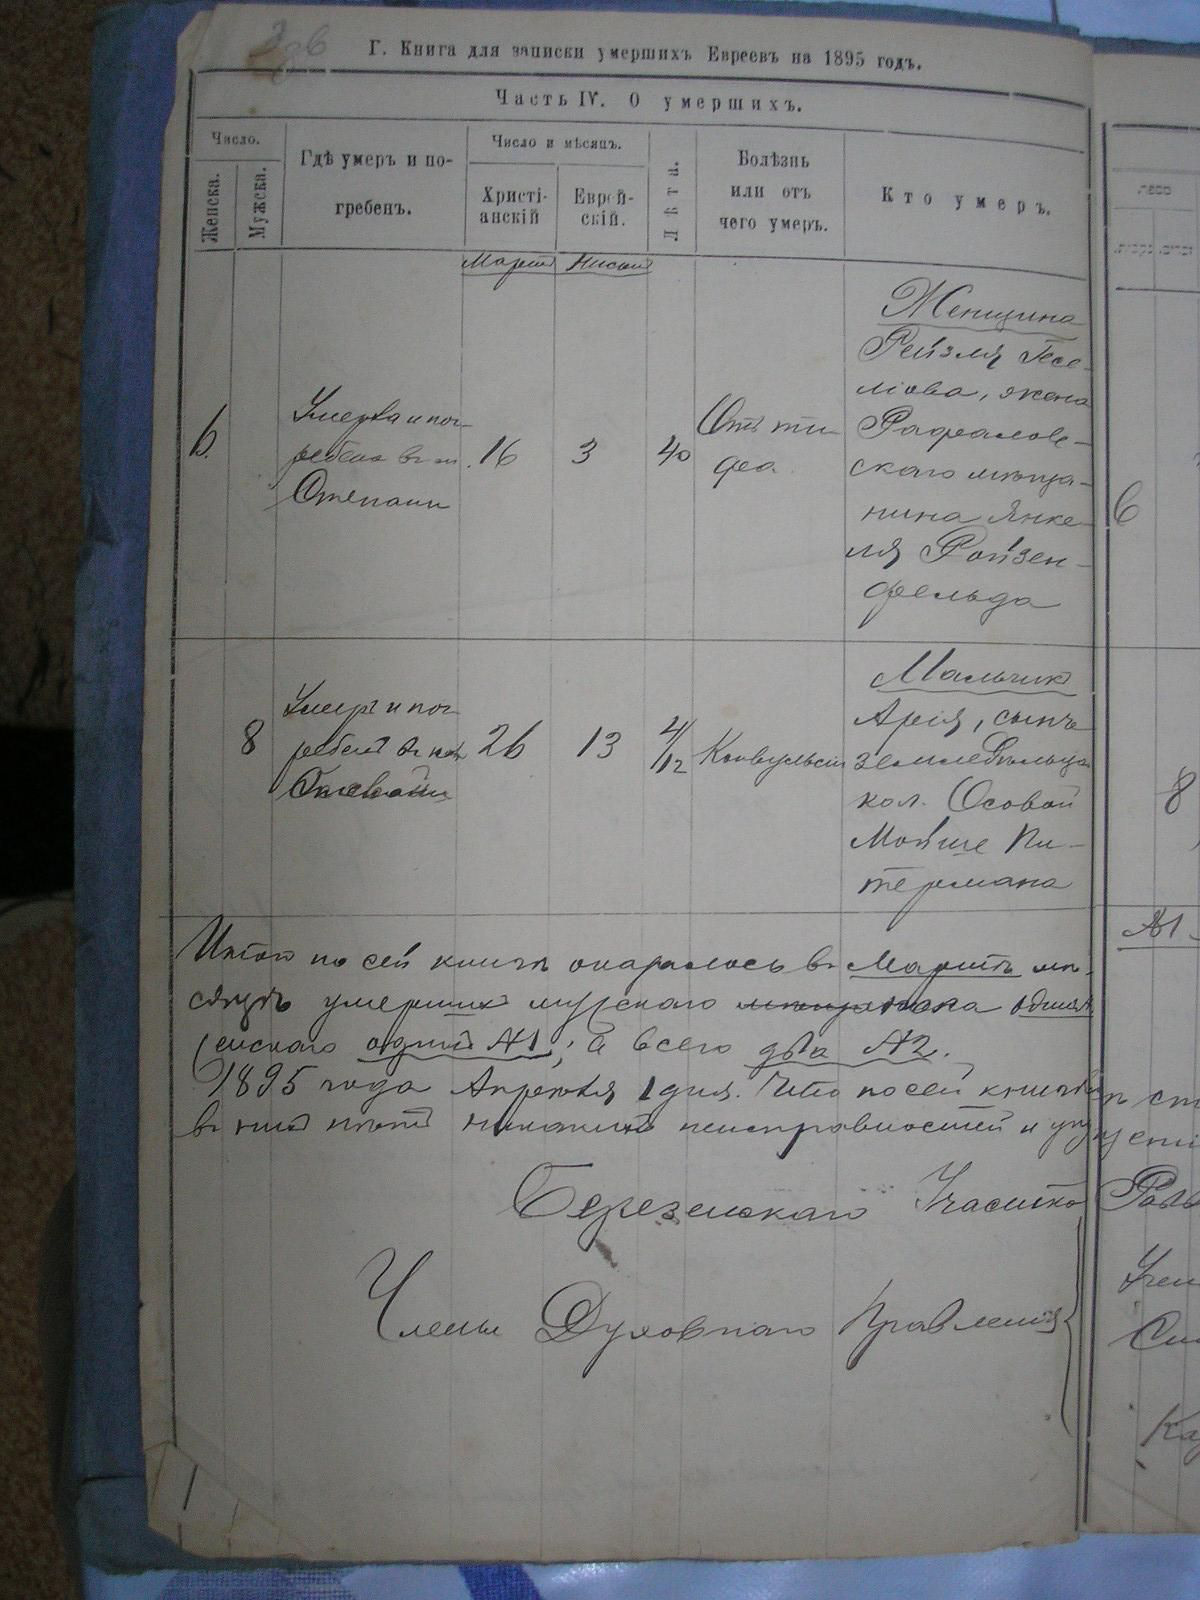 Г. Книга для записки умершихъ Евреевъ на 1895 годъ.
Часть IV. О умершихъ.
Число.
Женска.
Мужска.
Гдѣ умеръ и по-
гребенъ.
Число и мѣсяцъ.
Христі-
анскій
Еврей-
скій.
Лѣта.
Болѣзнь
или отъ
чего умеръ.
Кто умеръ.
Мартъ
Нисанъ
6.
Умерла и пог-
ребена въ м.
Степани
16
3
40
Отъ ти-
фа.
Женщина
Рейзля
жена
Рафалов-
скаго мѣща-
нина Янке-
ля Ройзен-
фельда
6
8
Умеръ и пог-
ребенъ въ
26
13
4/12
Конвульсіи
Мальчикъ
Арія, сынъ
земледѣльца
кол. Осовой
Мойше Пи-
термана
8
Итого по сей книгѣ оказалось въ Мартѣ мѣ-
сяцѣ умершихъ мужскаго одинъ
женскаго одинъ №1, а всего два №2.
1895 года Апрѣля 1 дня. Что по сей книгѣ
въ ней нѣтъ никакихъ неисправностей и
№1
Березенскаго Участка
Члены Духовнаго Правленія